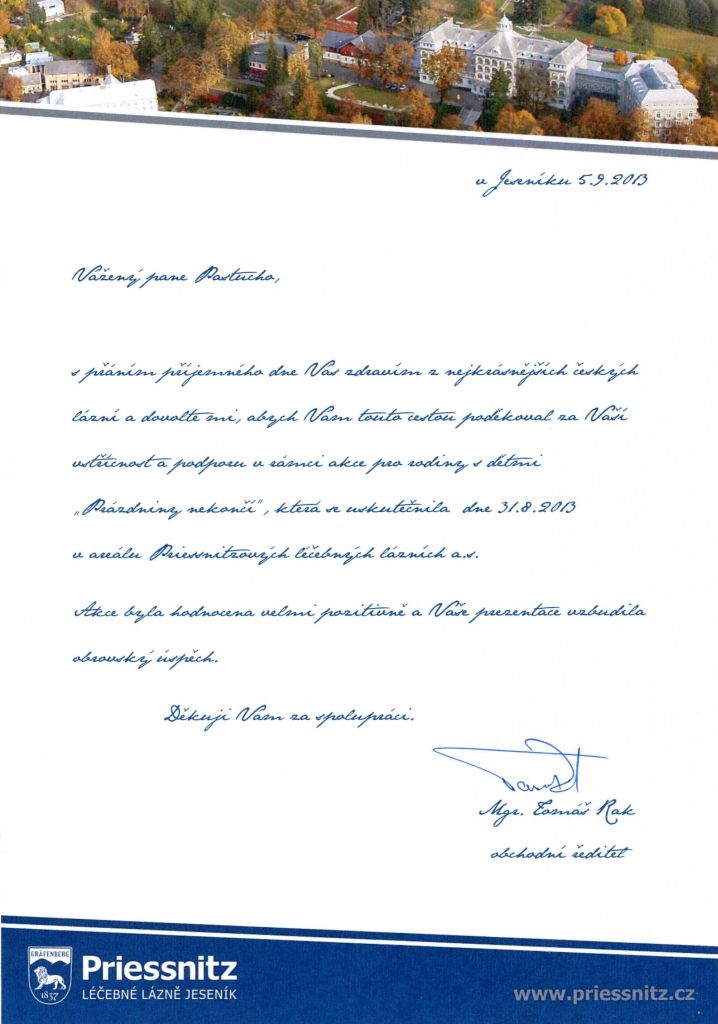 v Jeseníku 5.9.2013
Vážený pane Pastucho,
s přáním příjemného dne Vas zdravím z nejkrásnějších českých
lázní a dovolte mi, abych Vam touto cestou poděkoval za Vaší
vstřícnost a podporu v rámci akce pro rodiny s dětmi
„Prázdniny nekončí", která se uskutečnila dne 31.8.2013
v areálu Priessnitzových léčebných lázních a.s.
Akce byla hodnocena velmi pozitivně a Vaše prezentace vzbudila
obrovský úspěch.
Děkuji Vam za spolupráci.
Mgr. Tomáš Rak
obchodní ředitel
GRÄFENBERG
1837
Priessnitz
LÉČEBNÉ LÁZNĚ JESENÍK
www.priessnitz.cz